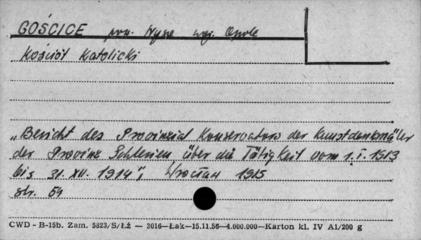 GOŚCICE pow. Nysa woj. Opole
Kościół Katolicki
„Bericht des Provinzial Konservators der Kunstdenkmäler
der Provinz Schlesien über die Tätigkeit vom 1.I.1913
bis 31.XII.1914", Wrocław 1915
str. 59
CWD - B-15b. Zam. 5823/S/Łż — 3016—Łak—15.11.56—4.000.000—Karton kl. IV A1/200 g